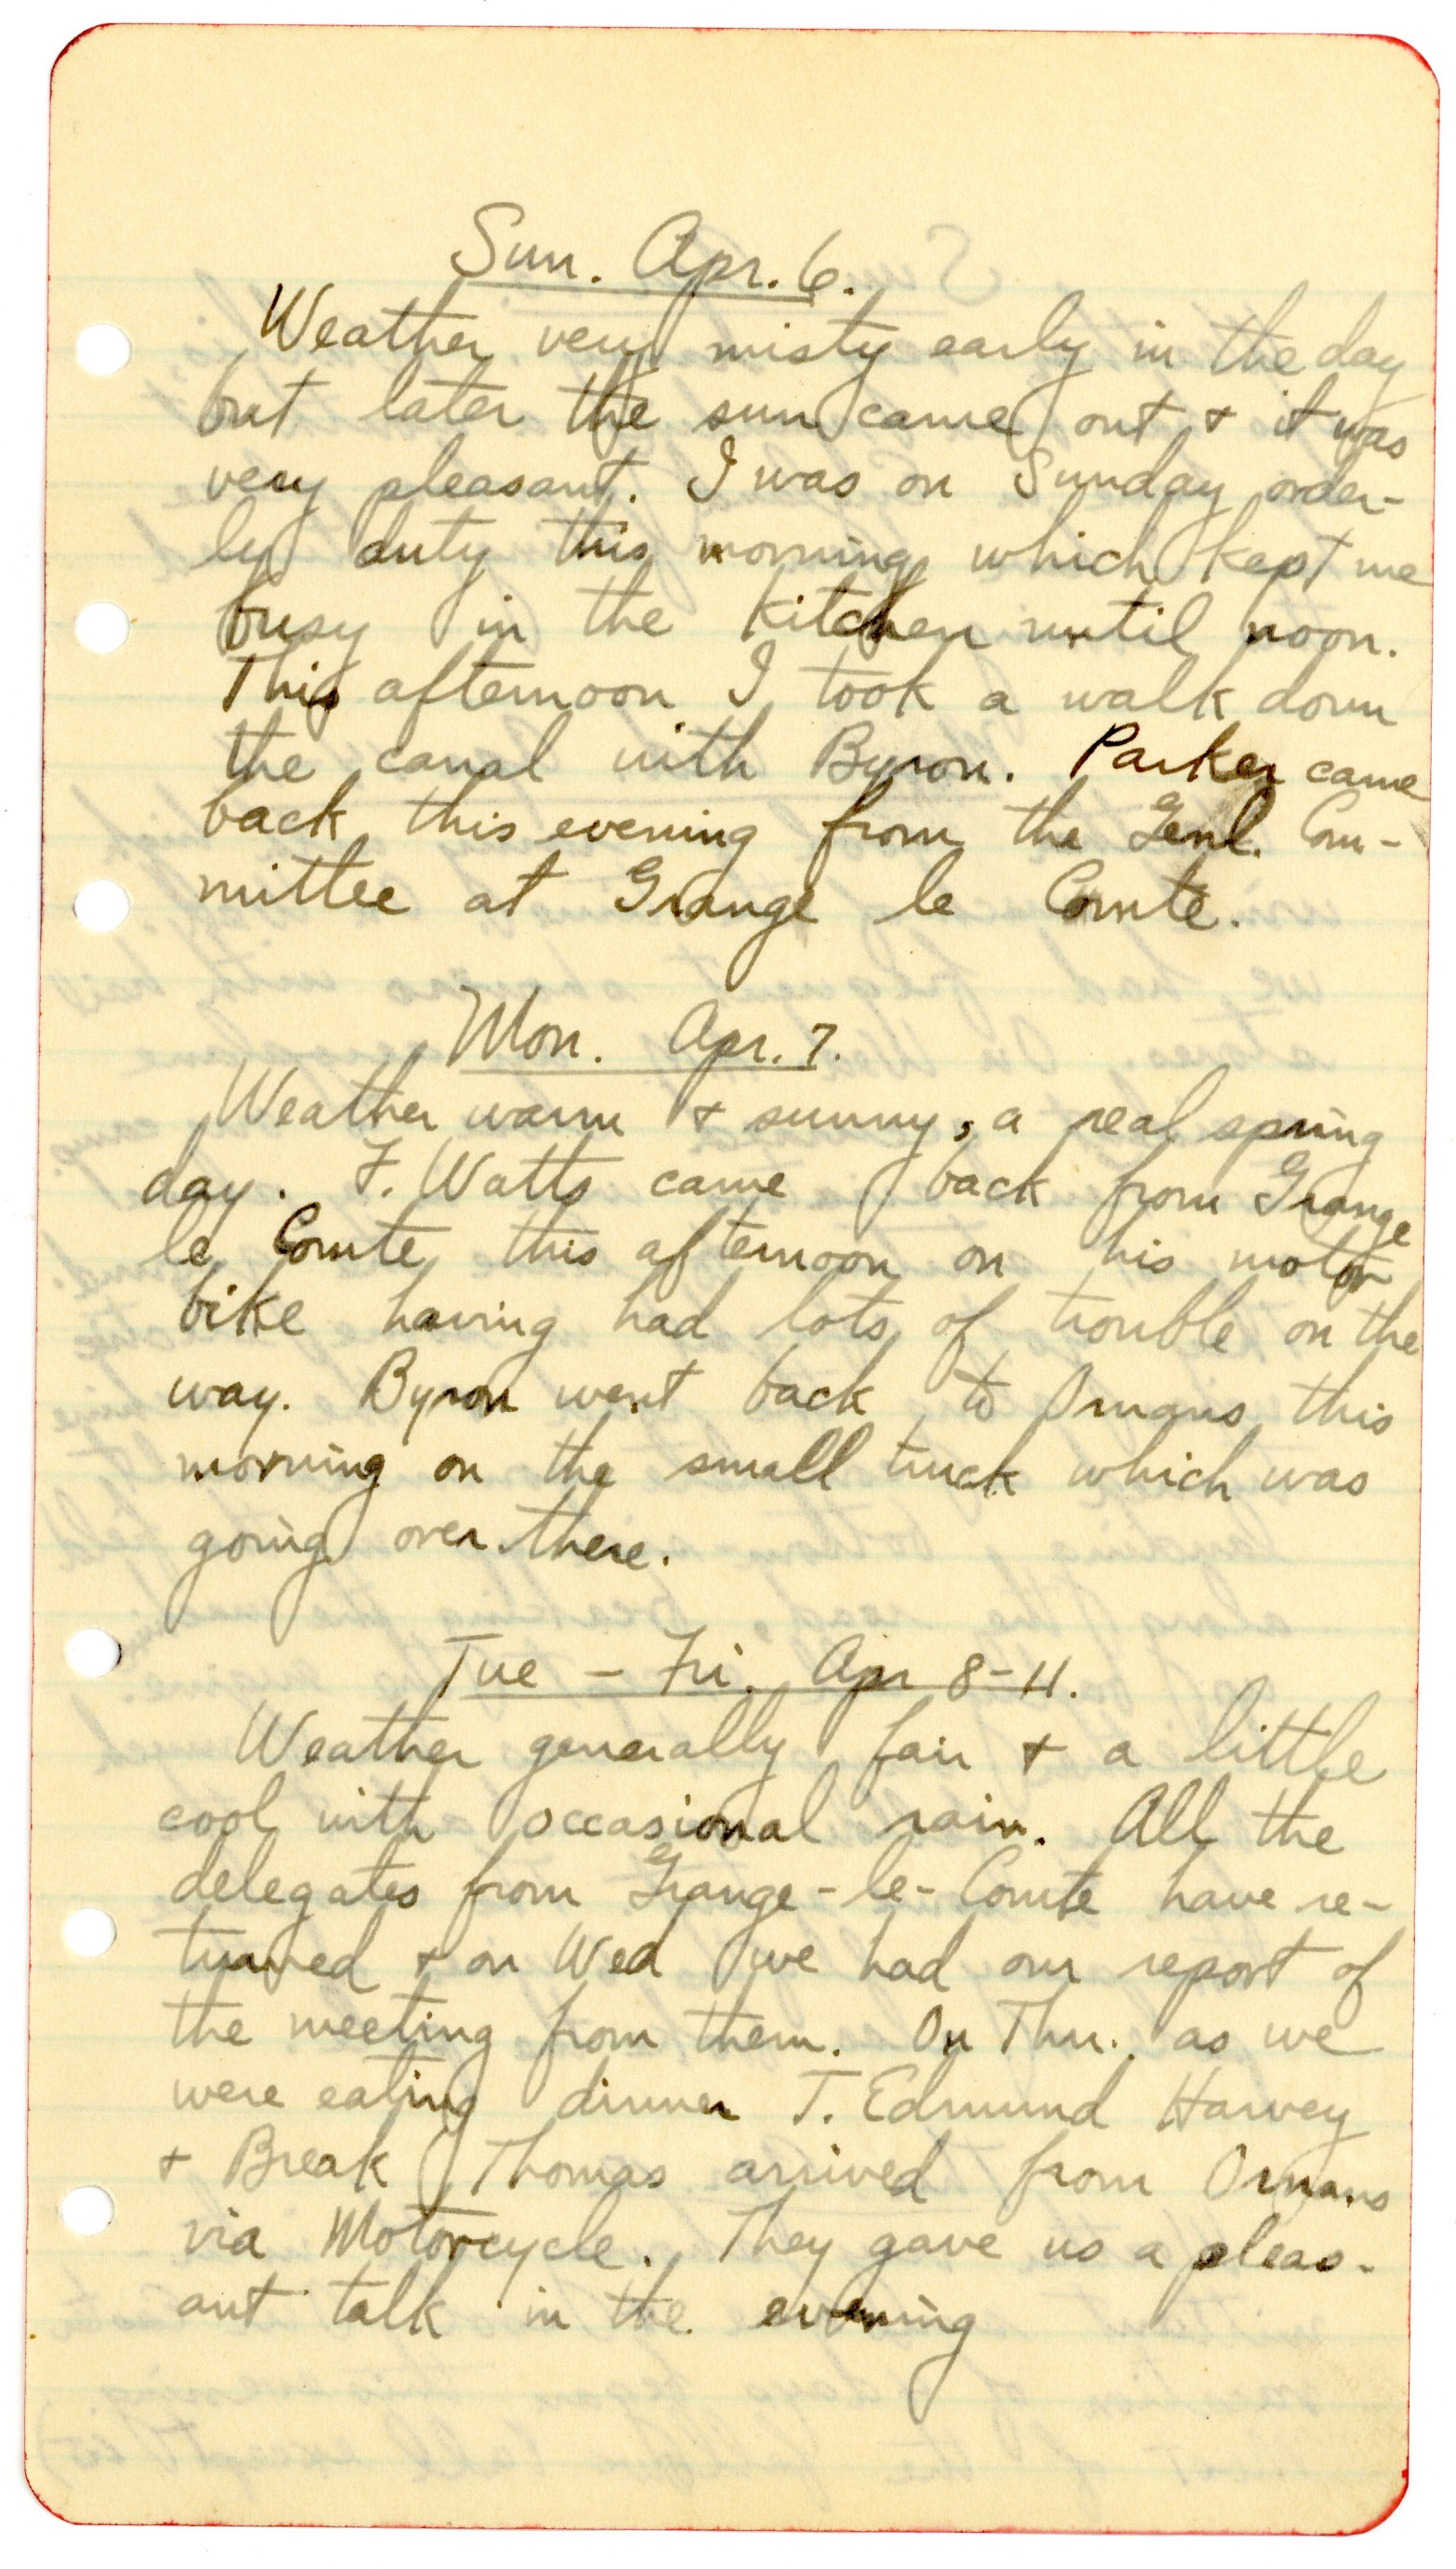 Sun. Apr. 6.
Weather very misty early in the day
but later the sun came out + it was
very pleasant. I was on Sunday order-
ly duty this morning which kept me
busy in the kitchen until noon.
This afternoon I took a walk down
the canal with Byron. Parker came
back this evening from the Genl. Com-
mittee at Grange le Comte.
Mon. Apr. 7.
Weather warm + sunny, a real spring
day. F. Watts came back from Grange
le Comte this afternoon on his motor
bike having had lots of trouble on the
way. Byron went back to Ornans this
morning on the small truck which was
going over there.
Tue - Fri. Apr 8-11.
Weather generally fair + a little
cool with occasional rain. All the
delegates from Grange-le-Comte have re-
turned + on Wed we had our report of
the meeting from them. On Thu. as we
were eating dinner T. Edmund Harvey
+ Break Thomas arrived from Ornans
via Motorcycle. They gave us a pleas-
ant talk in the evening